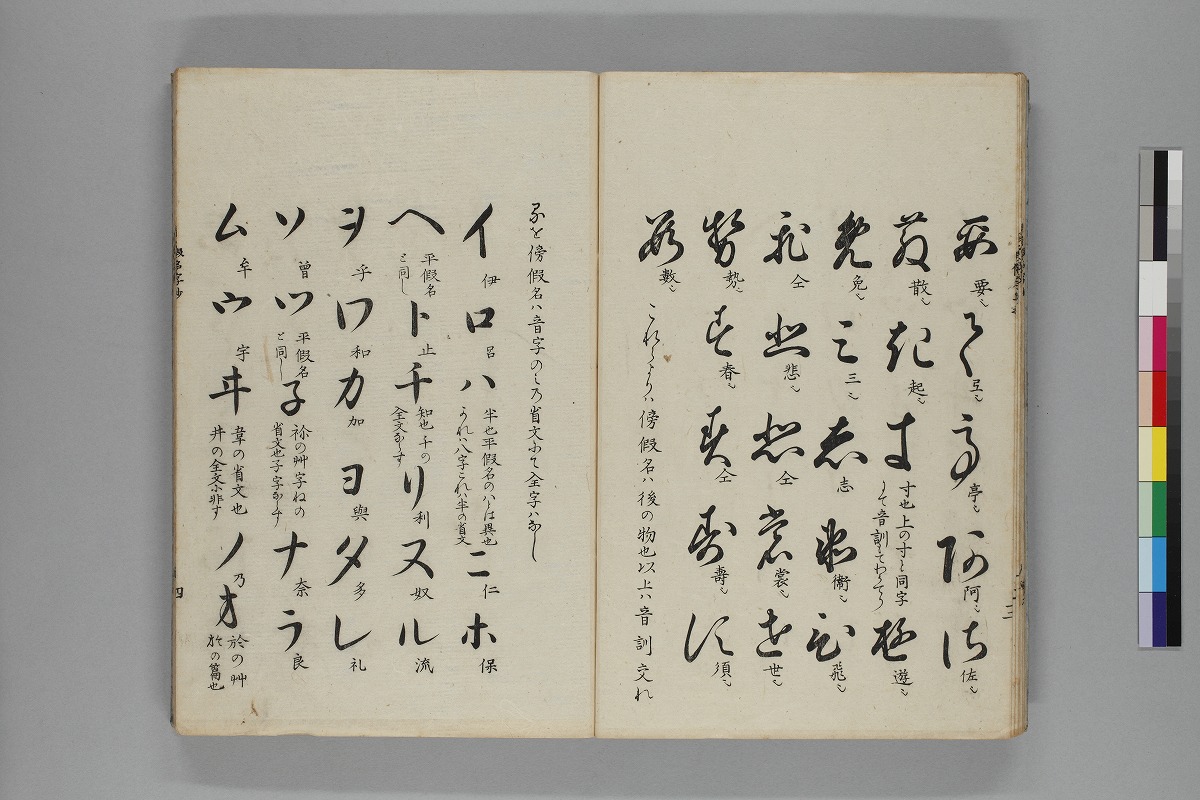 要
弖
亭
阿
佐
散
起
寸也上の寸と同字
にて音訓にてわかてり
遊
免
三
志
衛
飛
仝
悲
仝
裳
世
勢
春
仝
壽
須
數
これよりハ傍假名ハ後の物也以上ハ音訓交れ
るを傍假名ハ音字のミの省文にて全字ハなし
イ 伊
ロ 呂
ハ 半也平假名のハとは異也
これハ八字これハ半の省文
ニ 仁
ホ 保
ヘ 平假名
と同し
ト 止
チ 知也千の
全文ならす
リ 利
ヌ 奴
ル 流
ヲ 乎
ワ 和
カ 加
ヨ 與
タ 多
レ 礼
ソ 曽
ツ 平假名
と同し
子 祢の艸字ねの
省文也子字ならす
ナ 奈
ラ 良
ム 牟
ウ 宇
ヰ 韋の省文也
井の全文に非す
ノ 乃
オ 於の艸
於の篇也
三
四